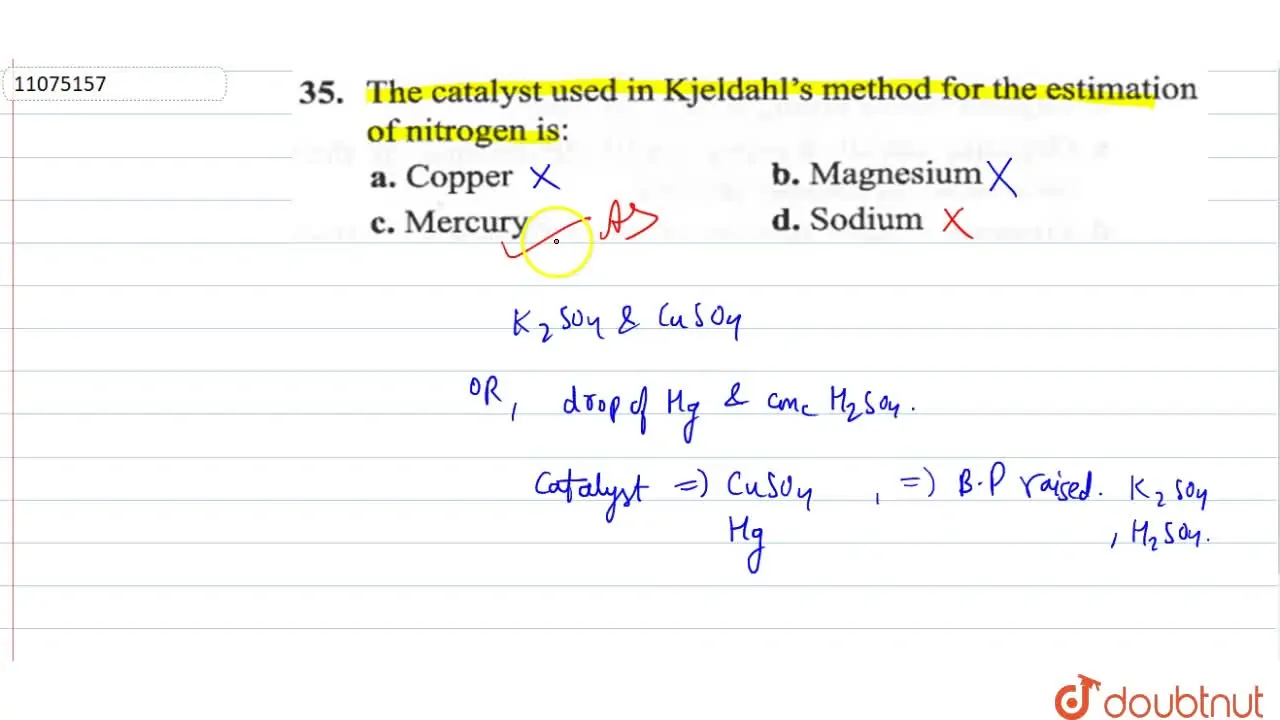 11075157
35. The catalyst used in Kjeldahl's method for the estimation
of nitrogen is:
a. Copper X b. Magnesium X
c. Mercury d. Sodium X
K2SO4 & CuSO4
OR, drop of Hg & conc H2SO4.
Catalyst => CuSO4, => B.P raised. K2SO4
Hg , H2SO4.
doubtnut